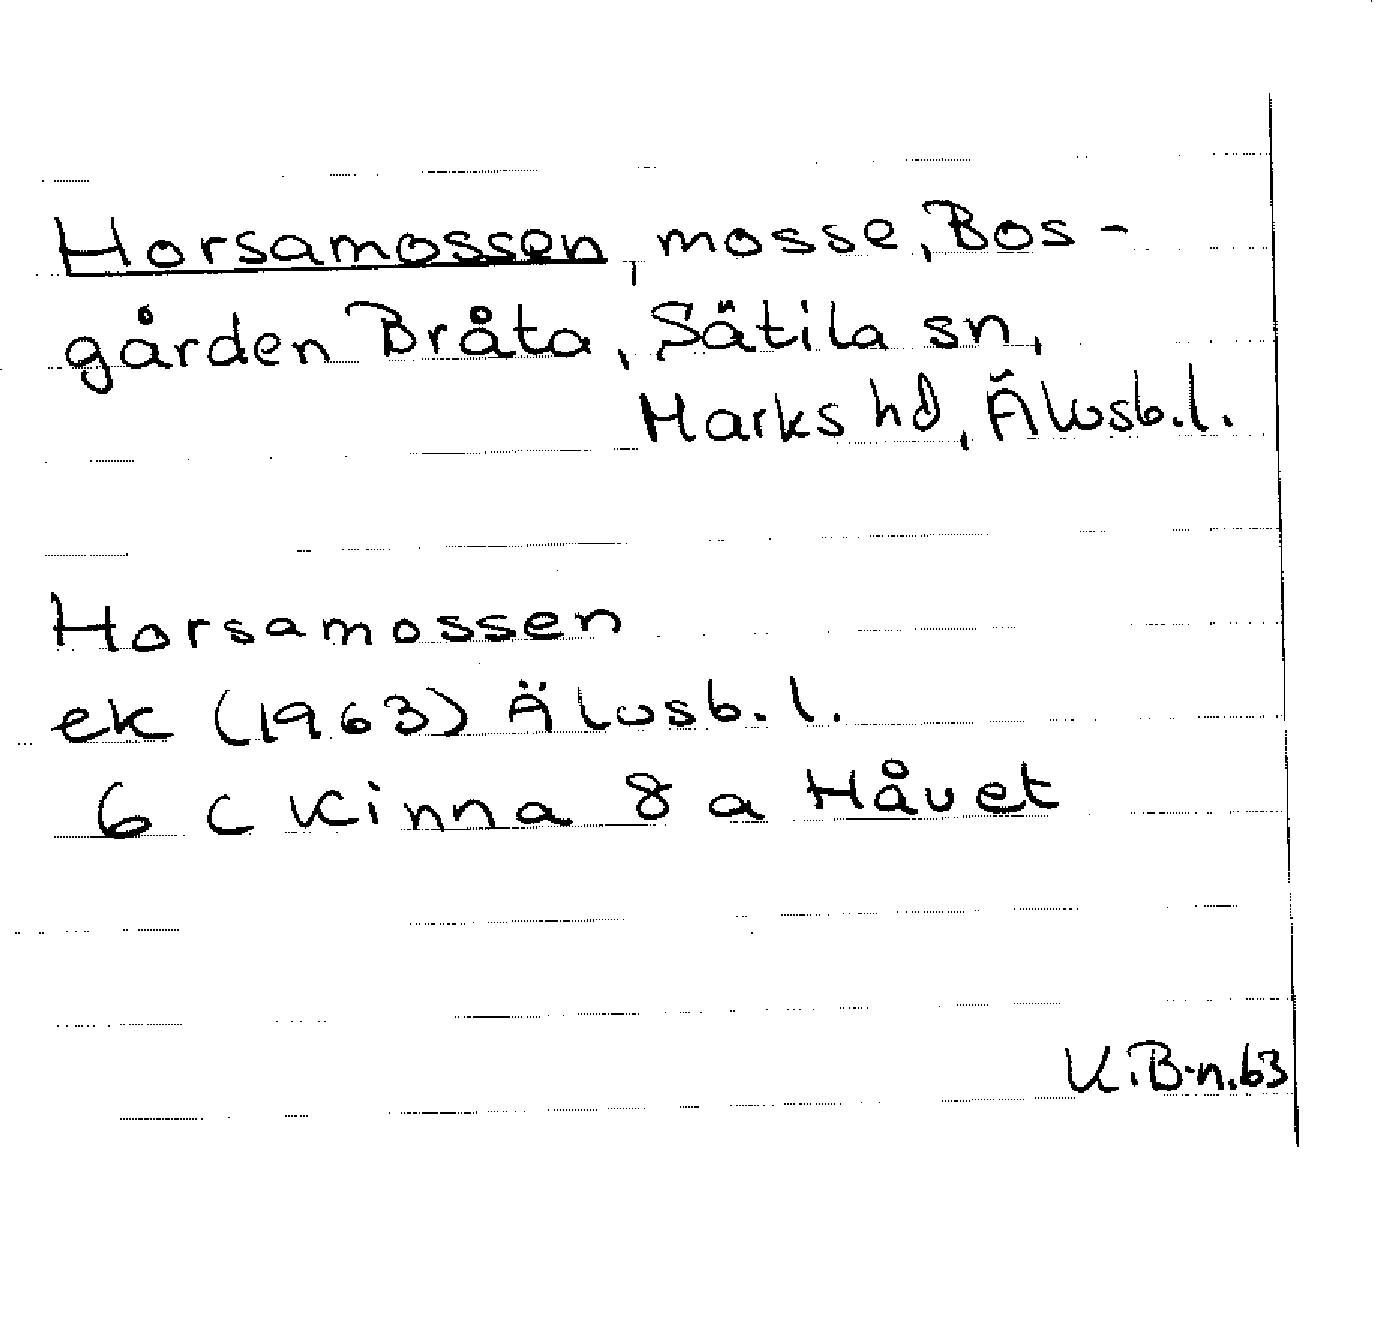 Horsamossen, mosse, Bos-
gården Bråta, Sätila sn,
Marks hd, Älvsb.l.
Horsamossen
ek (1963) Älvsb. l.
6 C Kinna 8 a Håvet
K.B-n.63